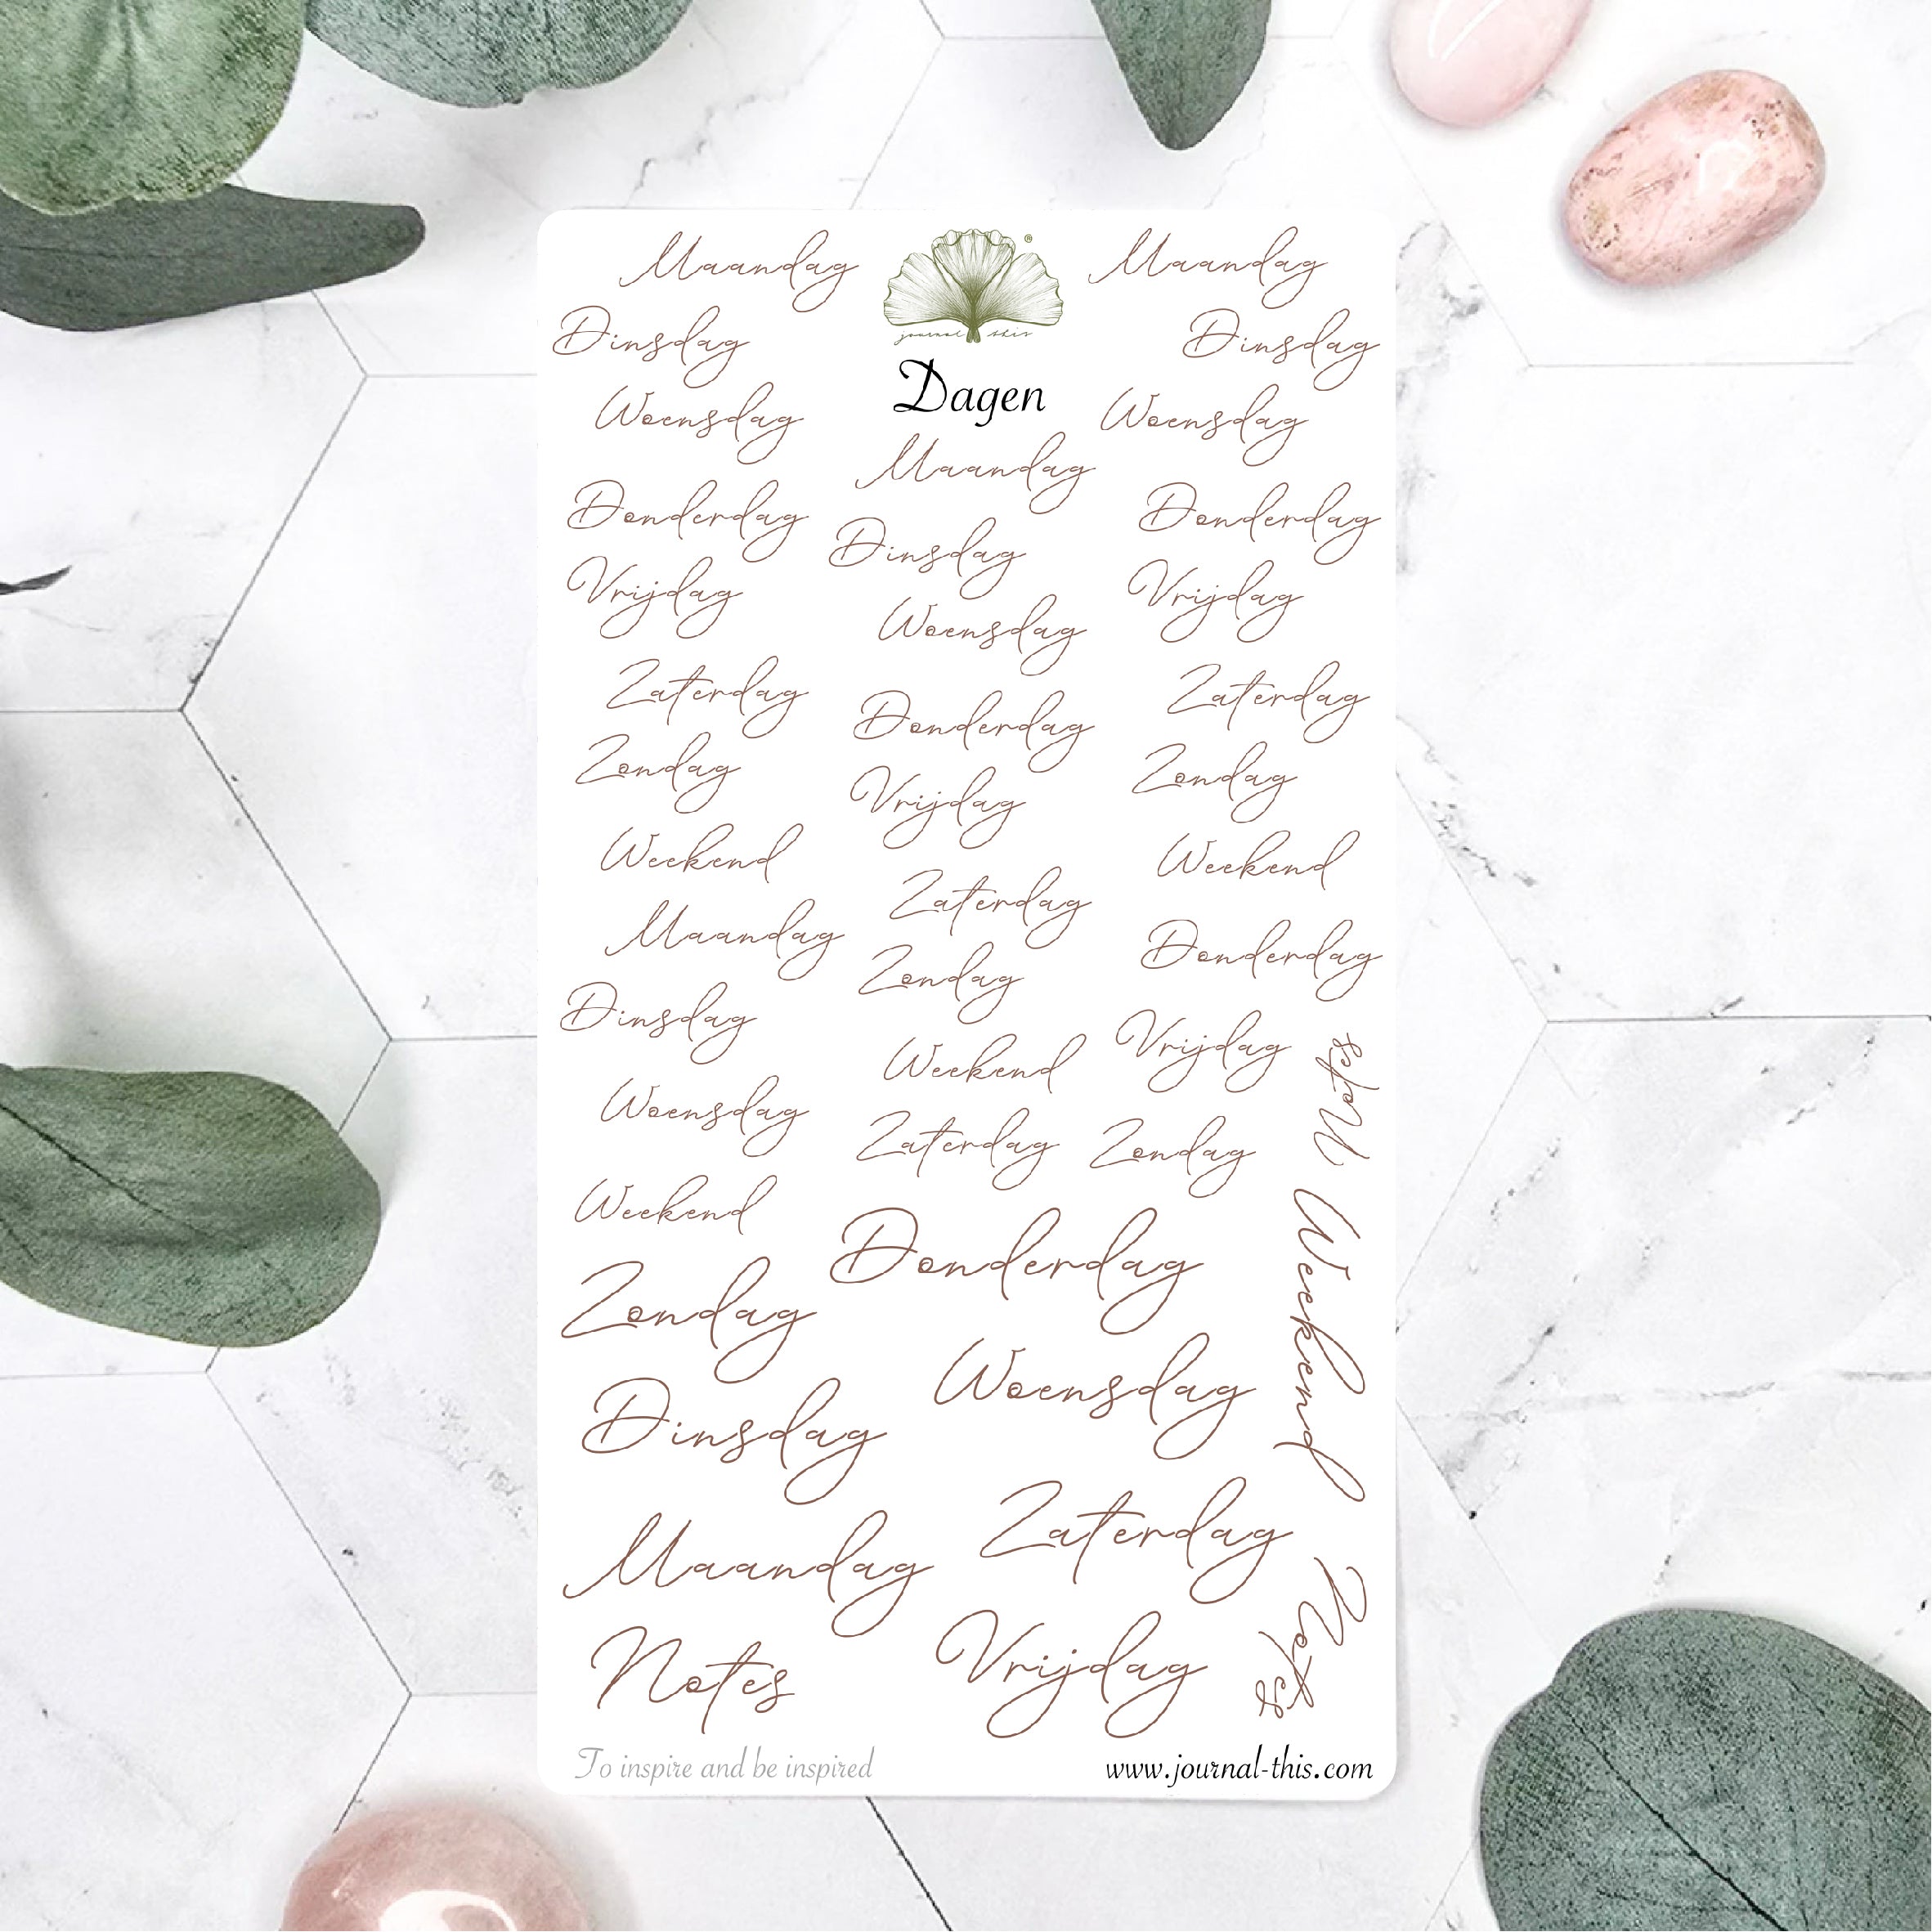 Maandag
Maandag
journal this
®
Dinsdag
Dinsdag
Dagen
Woensdag
Woensdag
Maandag
Donderdag
Donderdag
Dinsdag
Vrijdag
Vrijdag
Woensdag
Zaterdag
Zaterdag
Donderdag
Zondag
Zondag
Vrijdag
Weekend
Weekend
Zaterdag
Maandag
Donderdag
Zondag
Dinsdag
Vrijdag
Weekend
Notes
Woensdag
Zaterdag
Zondag
Weekend
Donderdag
Zondag
Weekend
Woensdag
Dinsdag
Zaterdag
Maandag
Notes
Vrijdag
Notes
To inspire and be inspired
www.journal-this.com